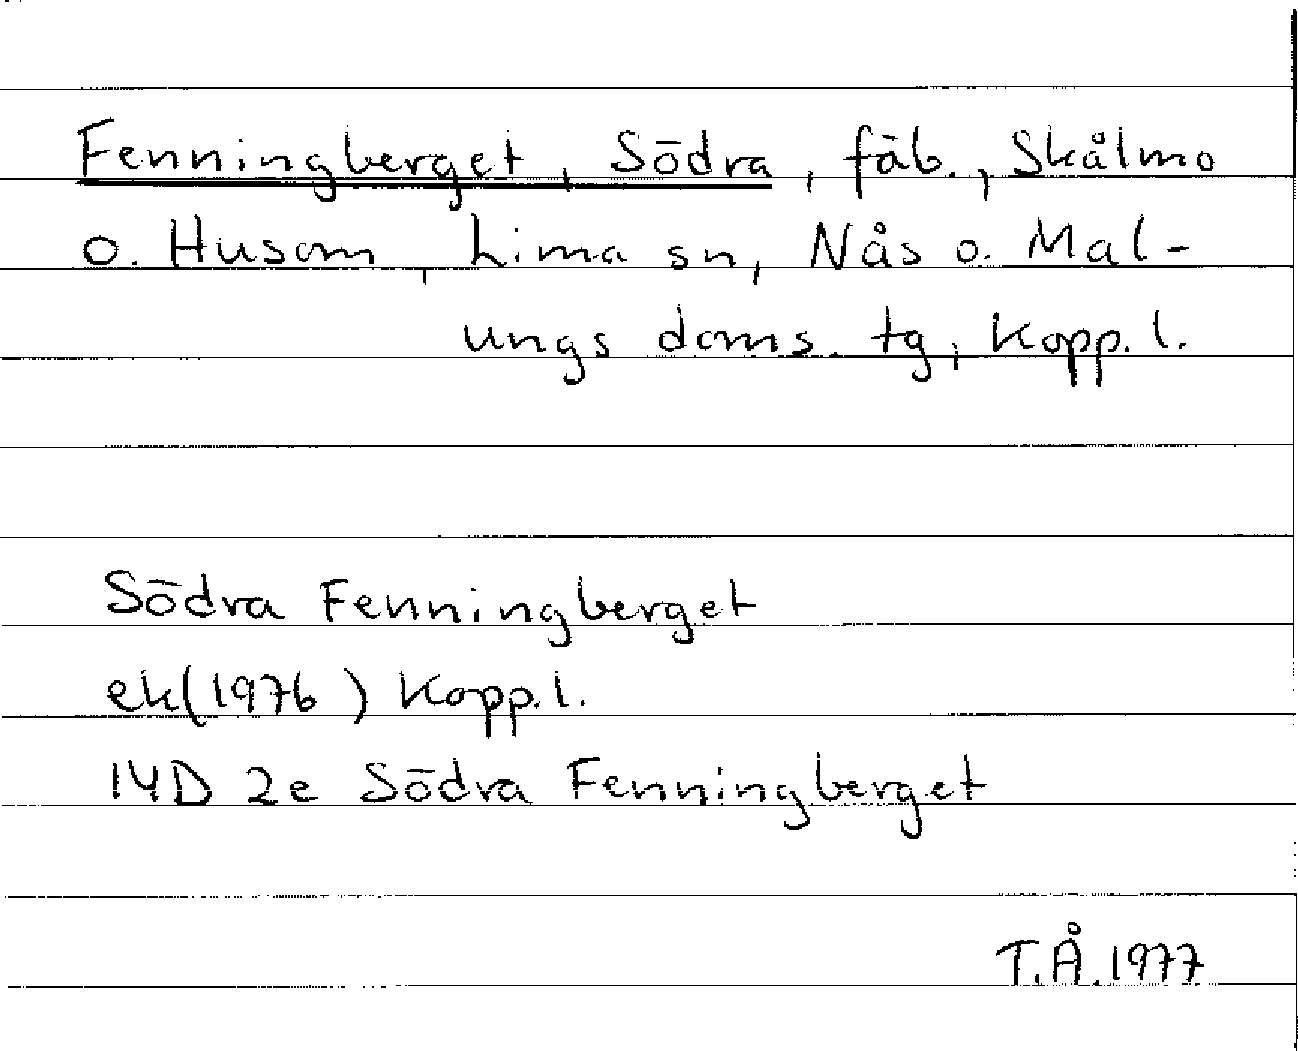 Fenningberget, Södra, fäb., Skålmo
o. Husom, Lima sn, Nås o. Mal-
ungs doms. tg, Kopp. l.
Södra Fenningberget
ek(1976) Kopp. l.
14D 2e Södra Fenningberget
T.Å.1977